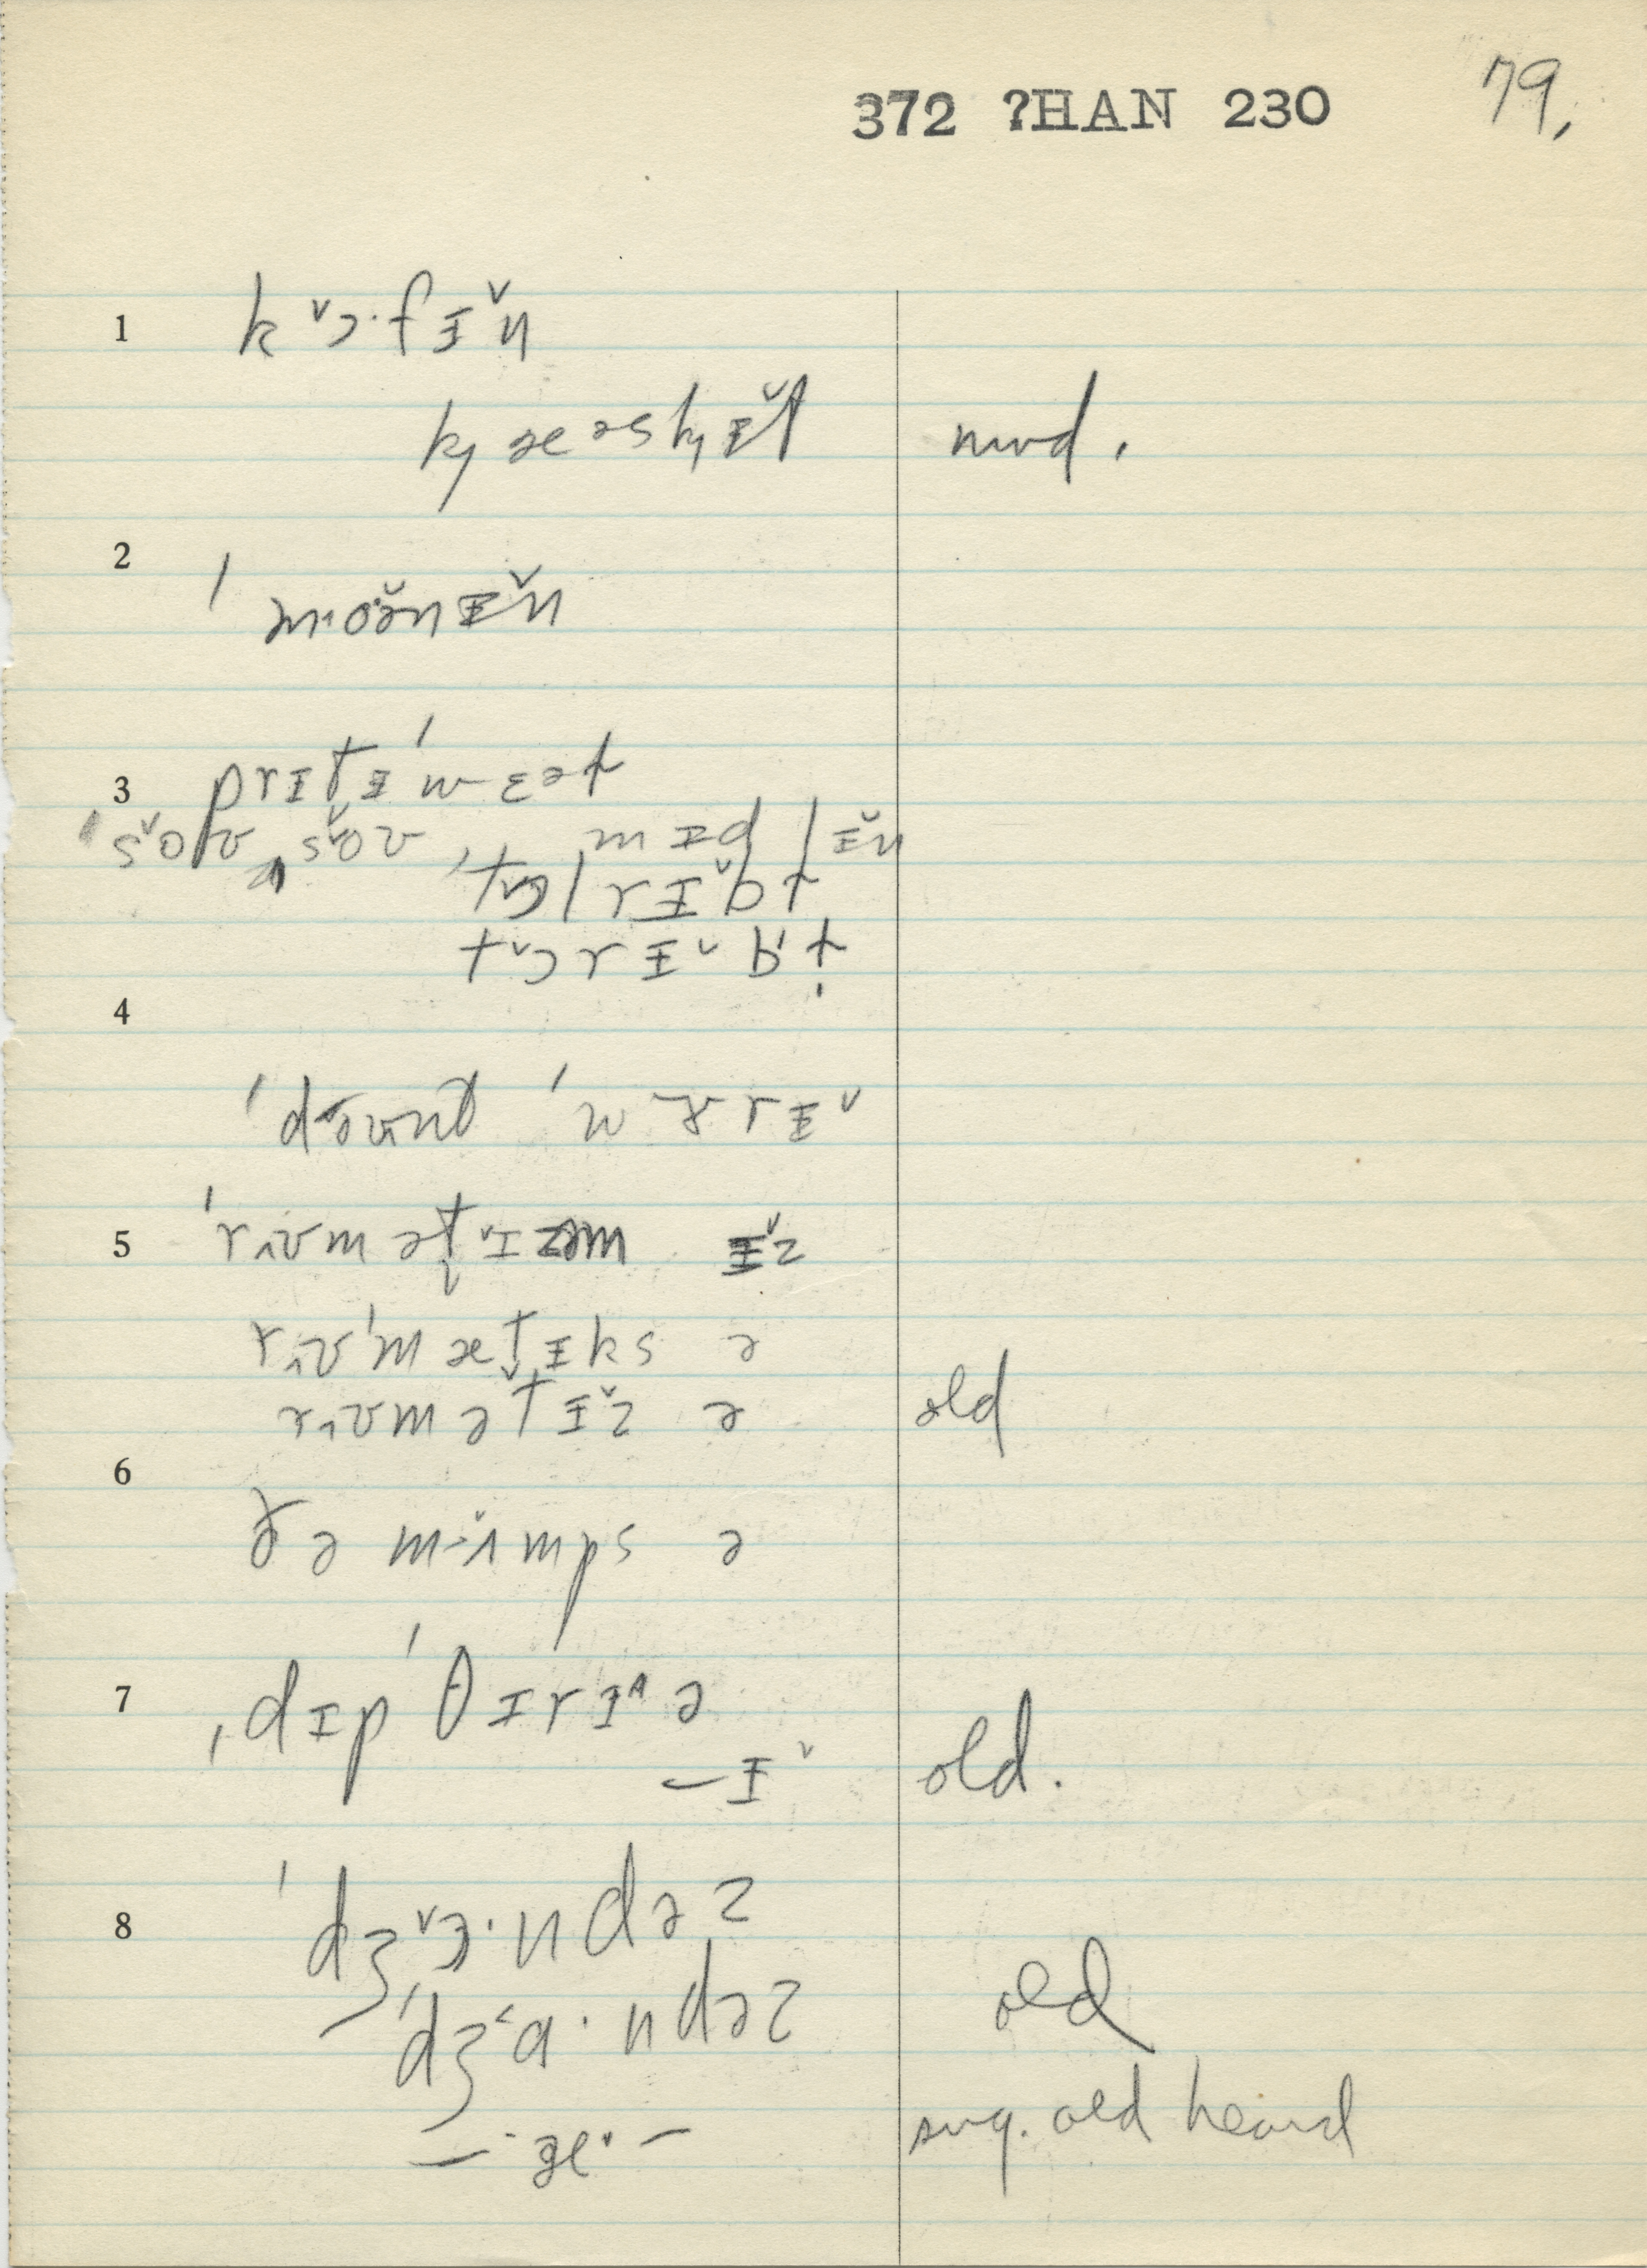 372 ?HAN 230 79.
1 k ˅ɔ·f ɪ ˅n
kȷ æ ə s kȷ ɪ̆ t mod.
2 ˈmoə̆n ɪ̆n
3 prɪtɪˈwɛət
ˈs˅oʊ
mɪd lɪ̆n
rɪ˅bt
t˅ɔrɪ˅bt
4
ˈdoʊnt ˈwɝrɪ˅
5 ˈrʌʊmət˅ɪzəm ɪ̆z
rʌʊˈmætɪks ə
rʌʊmətɪ̆z ə old
6
ðə mʌmps ə
7 ˌdɪpˈθɪrɪ^ə
—ɪ˅ old.
8 ˈdʒ˅ɔ·ndəz
ˈdʒ˂ɑ·ndəz old
— æ· — sug. old heard